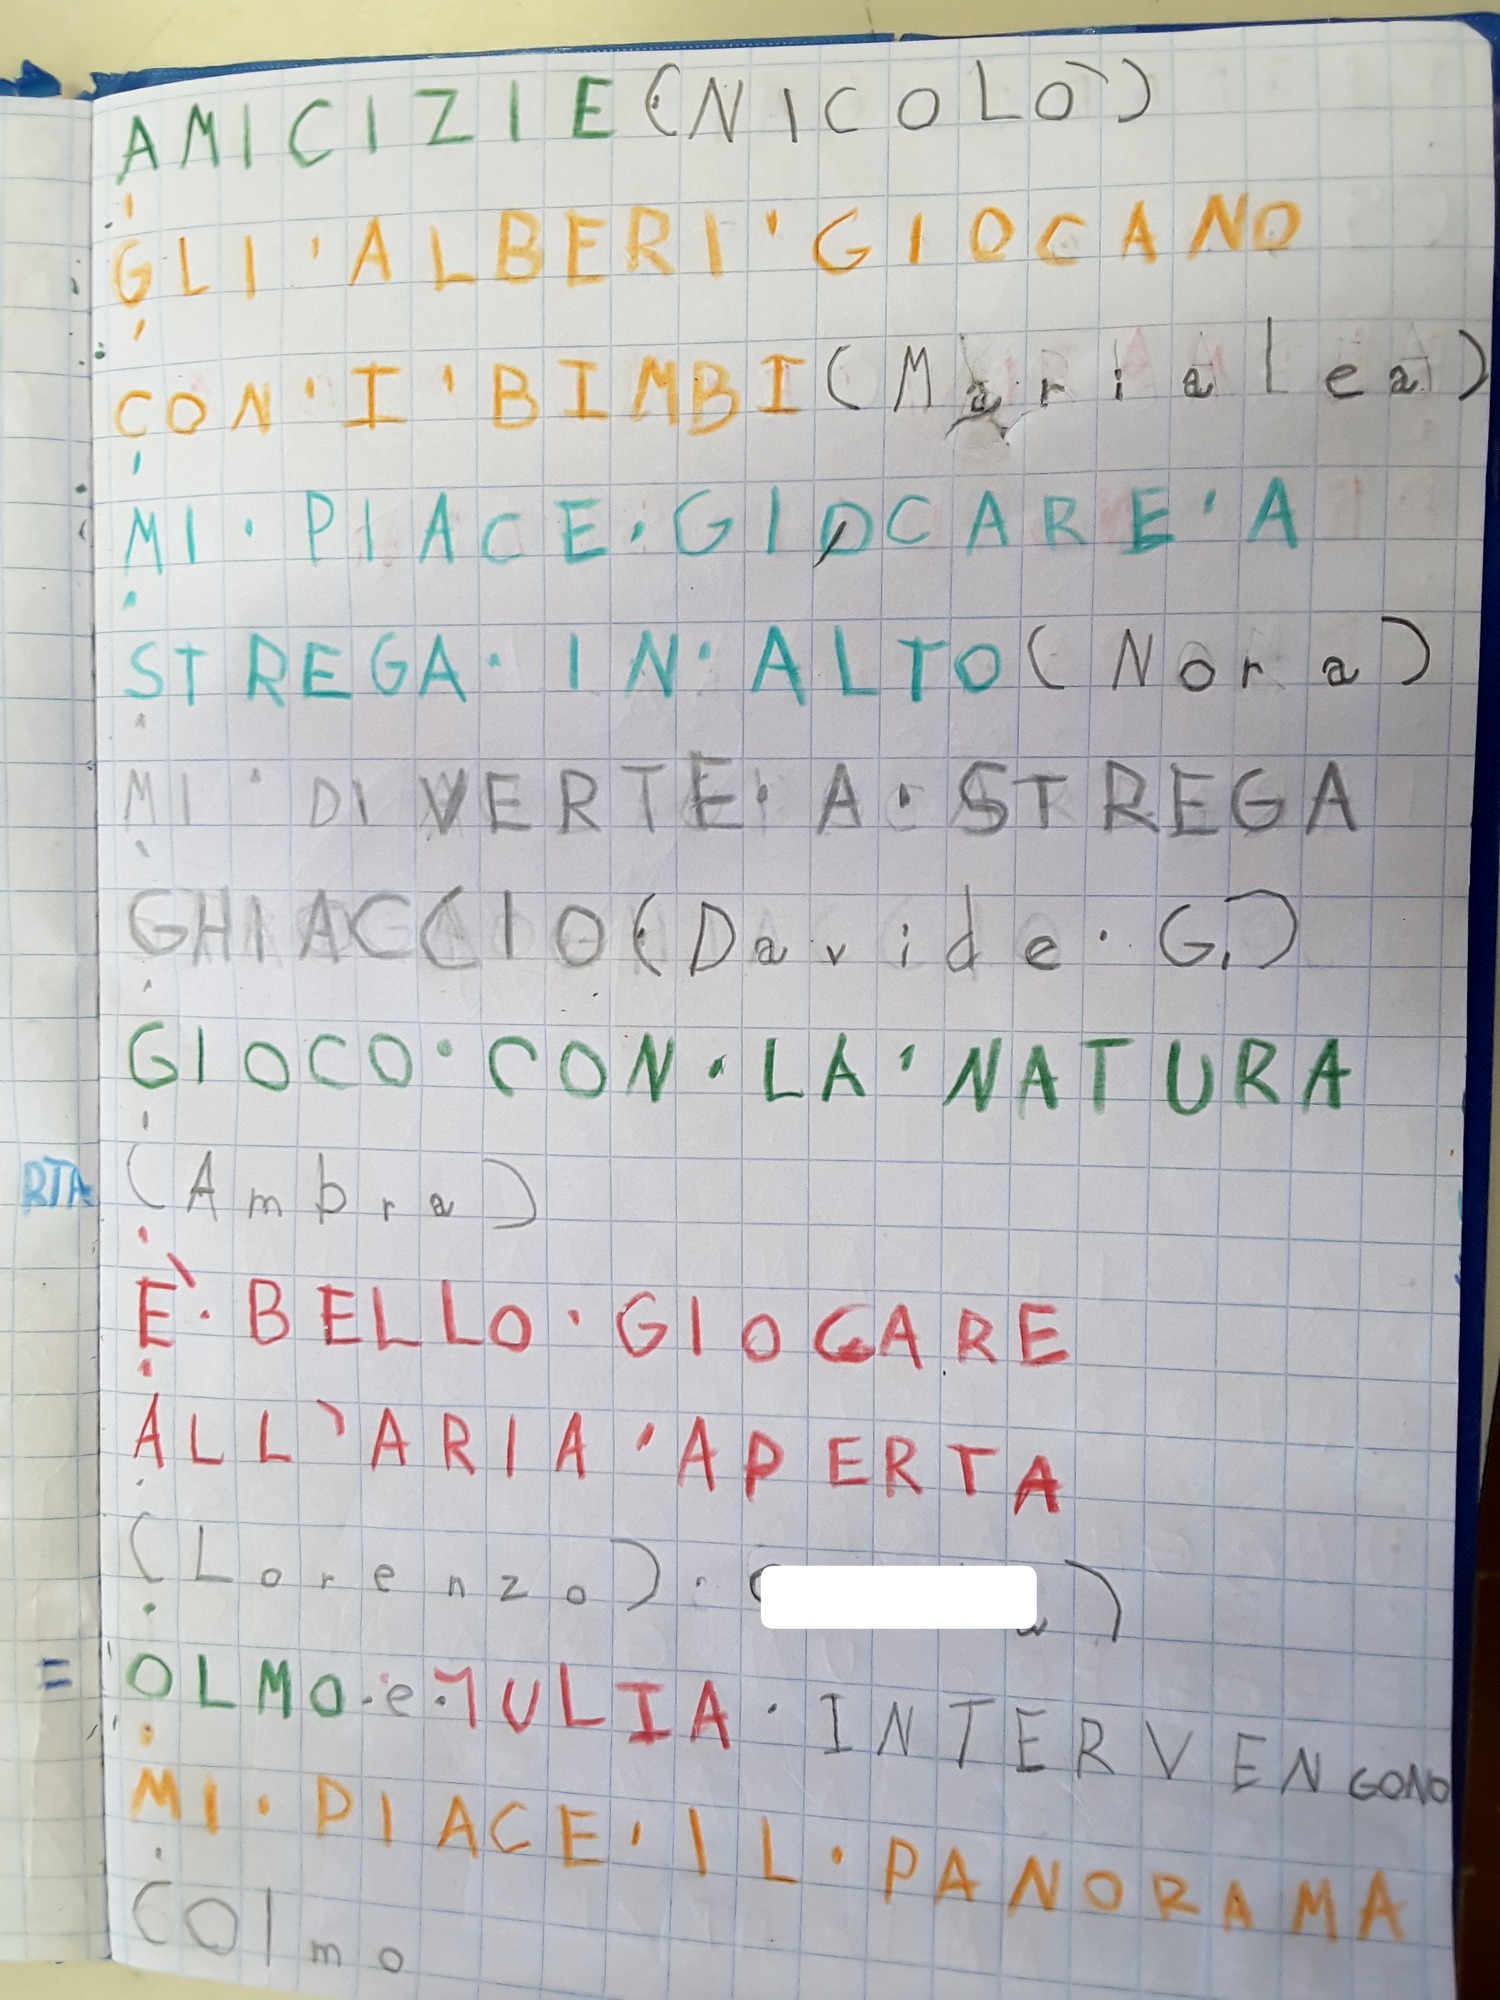 AMICIZIE (NICOLO')
GLI ALBERI GIOCANO
CON I BIMBI (Maria lea)
MI PIACE GIOCARE A
STREGA IN ALTO (Nora)
MI DIVERTE A STREGA
GHIACCIO (Davide G.)
GIOCO CON LA NATURA
RTA
(Ambra)
E' BELLO GIOCARE
ALL'ARIA APERTA
(Lorenzo)
=
OLMO e JULIA INTERVENGONO
MI PIACE IL PANORAMA
(Olmo